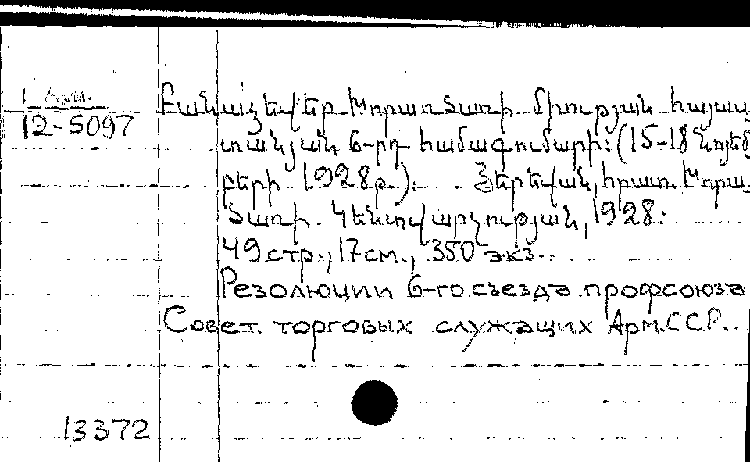 1 Арм.
12-5097
Բանաձեվեր Խորառևտառի միության հայաս
տանյան 6-րդ համագումարի: (15-18 նոյեմ
բերի 1928թ.). Յերեվան, հրատ. Խորա
ռևտառի. Կենտվարչության, 1928:
49 стр., 17 см., 350 экз.
Резолюции 6-го съезда профсоюза
Совет. торговых служащих Арм.ССР.
13372